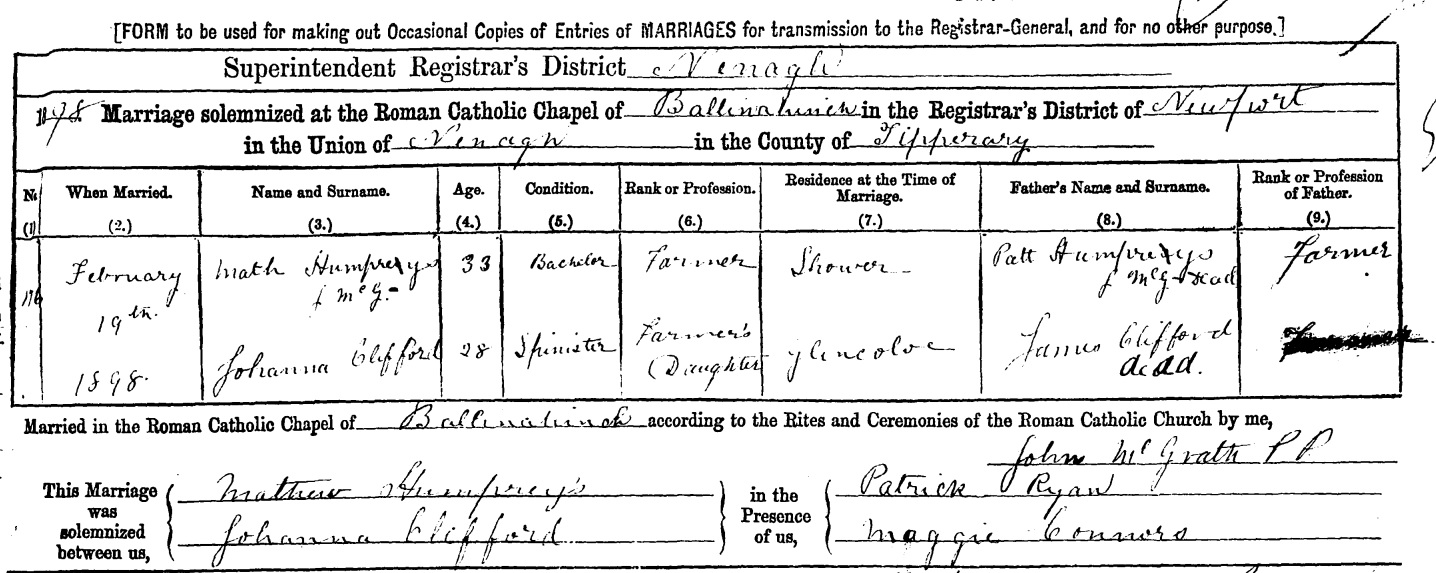 [FORM to be used for making out Occasional Copies of Entries of MARRIAGES for transmission to the Registrar-General, and for no other purpose.]
Superintendent Registrar's District Nenagh
1898 Marriage solemnized at the Roman Catholic Chapel of Ballinahinch in the Registrar's District of Newport
in the Union of Nenagh in the County of Tipperary
No. When Married. Name and Surname. Age. Condition. Rank or Profession. Residence at the Time of Marriage. Father's Name and Surname. Rank or Profession of Father.
(1) (2.) (3.) (4.) (5.) (6.) (7.) (8.) (9.)
February Math Humphreys 33 Bachelor Farmer Shower Patt Humphreys Farmer
J McG. J McG dead
19th
Johanna Clifford 28 Spinister Farmer's Daughter Glencoloe James Clifford
1898. dead.
Married in the Roman Catholic Chapel of Ballinahinch according to the Rites and Ceremonies of the Roman Catholic Church by me,
John McGrath P P
This Marriage was solemnized between us, Mathew Humphreys in the Presence of us, Patrick Ryan
Johanna Clifford Maggie Connors